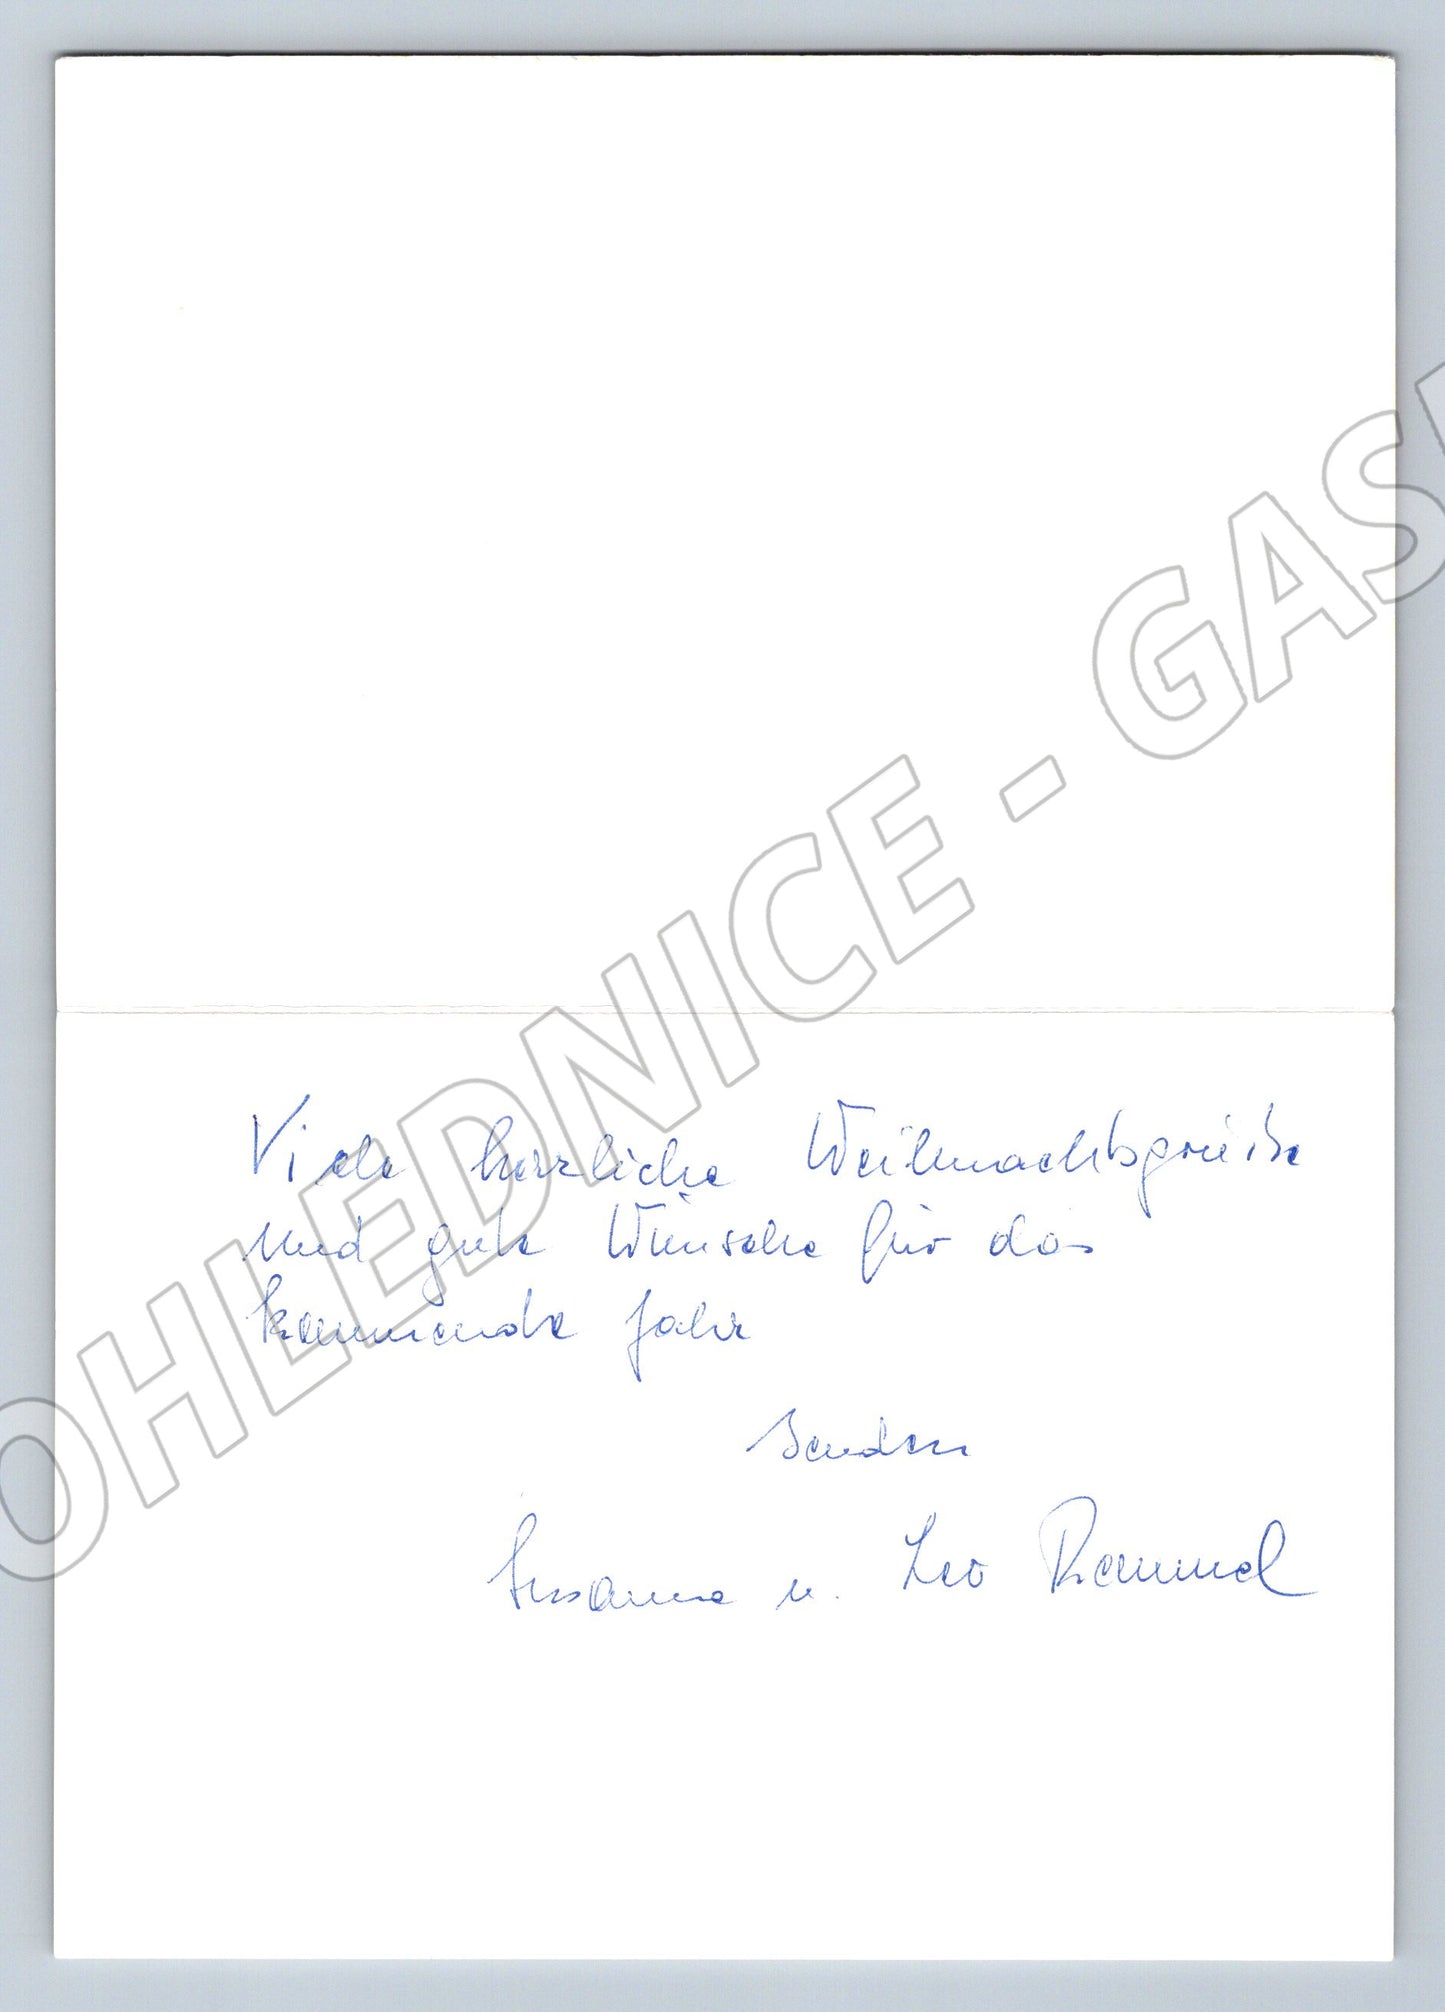 Viele herzliche Weihnachtsgrüße
und gute Wünsche für das
kommende Jahr
senden
Susanne u. Leo Rammel
OHLEDNICE - GAS